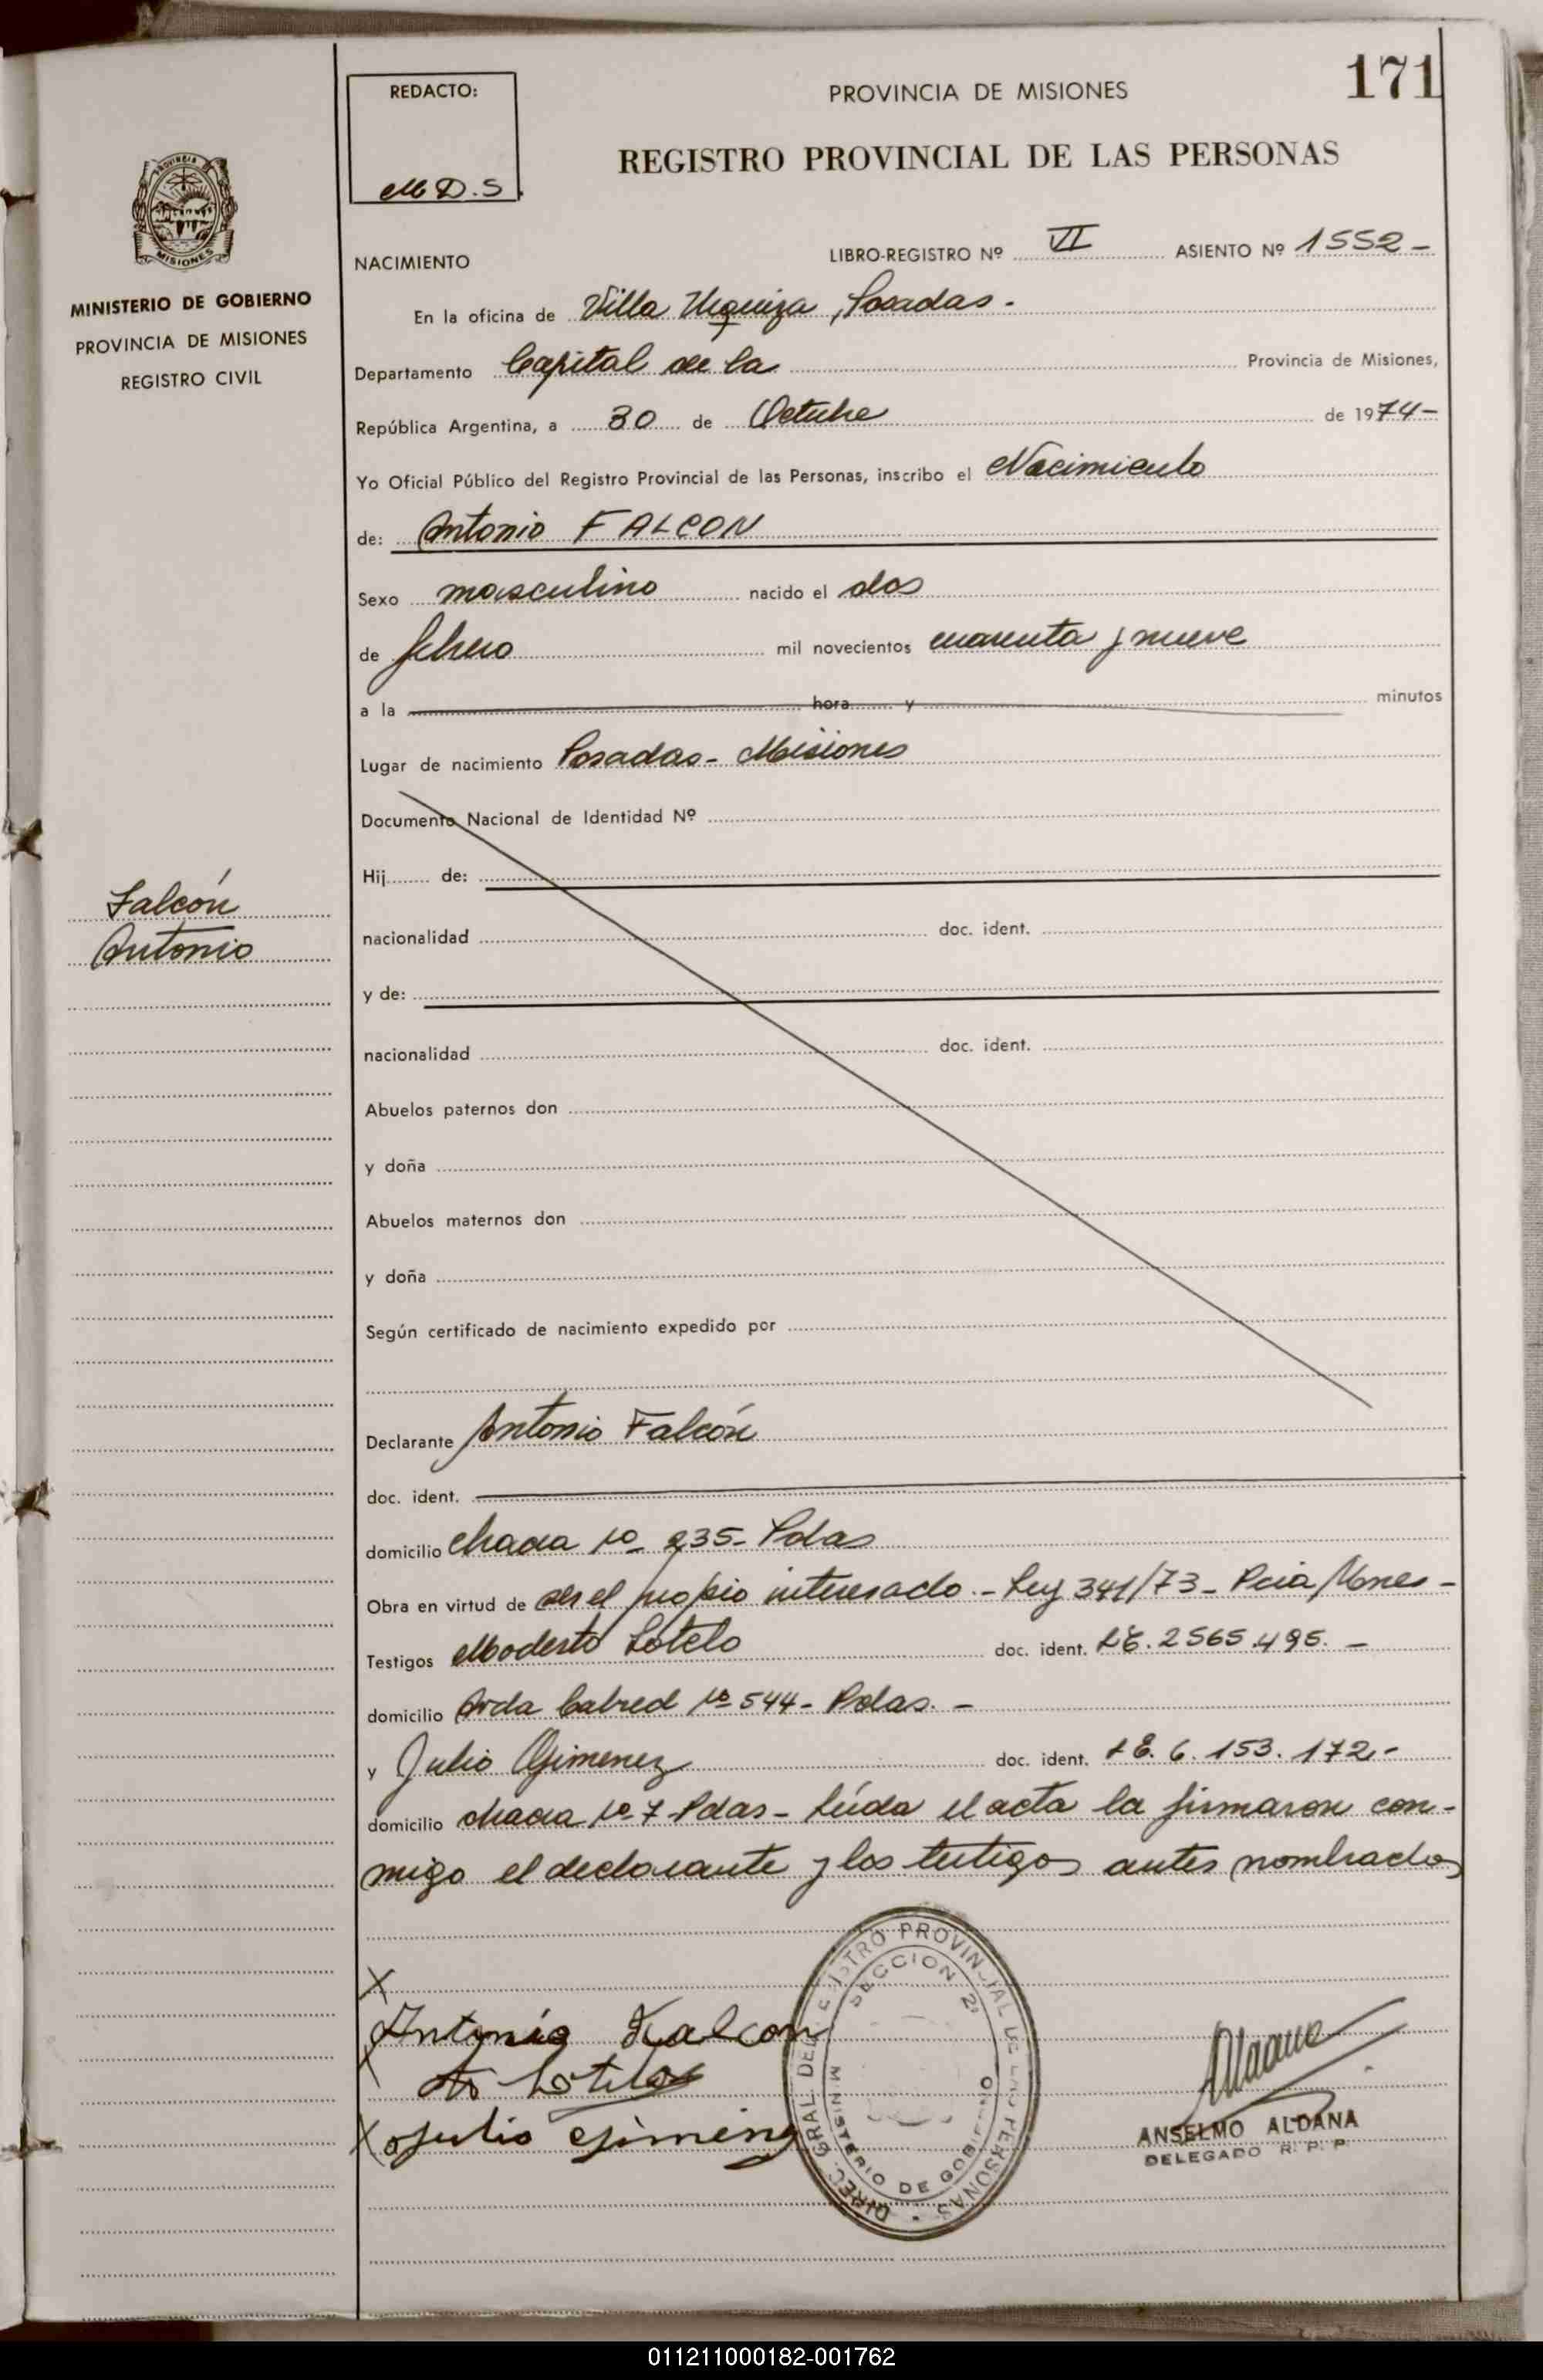 171
REDACTO:
M D. S.
PROVINCIA DE MISIONES
REGISTRO PROVINCIAL DE LAS PERSONAS
PROVINCIA
MISIONES
MINISTERIO DE GOBIERNO
PROVINCIA DE MISIONES
REGISTRO CIVIL
NACIMIENTO
LIBRO-REGISTRO Nº VI ASIENTO Nº 1552-
En la oficina de Villa Urquiza, Posadas.
Departamento Capital de la Provincia de Misiones,
República Argentina, a 30 de Octubre de 1974-
Yo Oficial Público del Registro Provincial de las Personas, inscribo el Nacimiento
de: Antonio FALCON
Sexo masculino nacido el dos
de febrero mil novecientos cuarenta y nueve
a la hora y minutos
Lugar de nacimiento Posadas- Misiones
Documento Nacional de Identidad Nº
Hij de:
Falcón
Antonio
nacionalidad doc. ident.
y de:
nacionalidad doc. ident.
Abuelos paternos don
y doña
Abuelos maternos don
y doña
Según certificado de nacimiento expedido por
Declarante Antonio Falcón
doc. ident.
domicilio Chacra Nº 235- Pdas
Obra en virtud de ser el propio interesado.- Ley 341/73- Pcia Mnes-
Testigos Modesto Sotelo doc. ident. LE. 2565.495.-
domicilio Avda Cabred Nº 544- Pdas.-
y Julio Gimenez doc. ident. LE. 6.153.172.-
domicilio chacra Nº 7- Pdas- Leída el acta la firmaron con-
migo el declarante y los testigos antes nombrados
X
Antonio Falcon
X Sotelo
X Julio Gimenez
DIREC. GRAL. DEL REGISTRO PROVINCIAL DE LAS PERSONAS
SECCION 2ª
MINISTERIO DE GOBIERNO
Aldana
ANSELMO ALDANA
DELEGADO R. P. P.
011211000182-001762